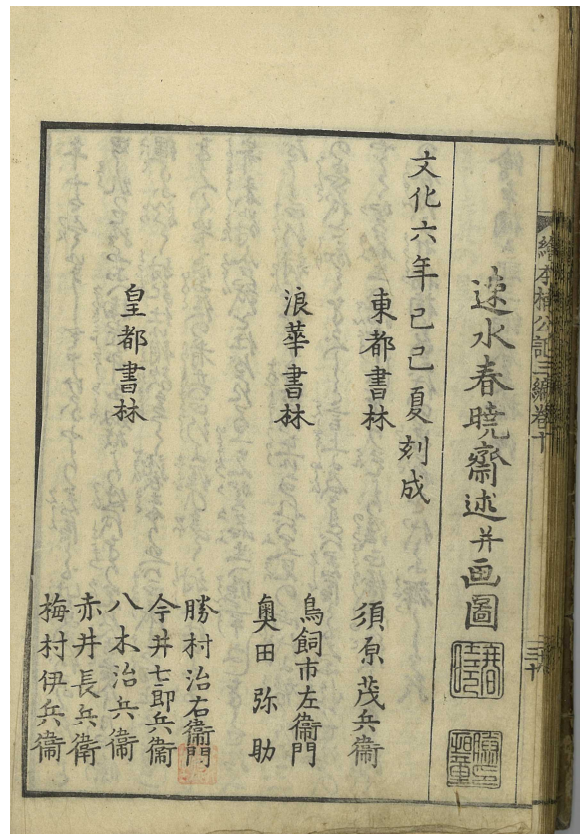 繪本楠公記三編卷十
三十
速水春暁齋述并画圖
文化六年己巳夏刻成
東都書林
須原茂兵衞
浪華書林
鳥飼市左衞門
奥田弥助
皇都書林
勝村治右衞門
今井七郎兵衞
八木治兵衞
赤井長兵衞
梅村伊兵衞